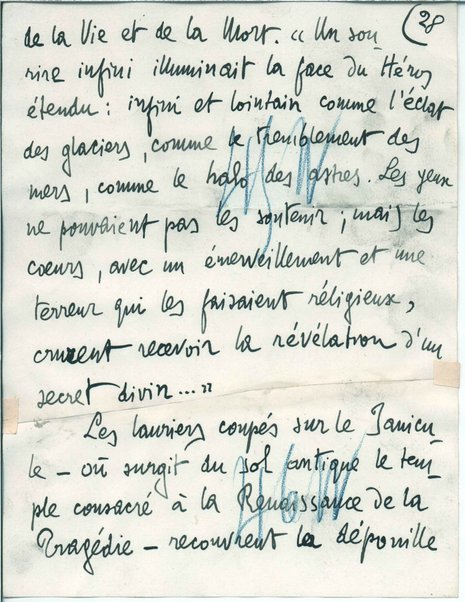 28
de la Vie et de la Mort. « Un sou
rire infini illuminait la face du Héros
étendu : infini et lointain comme l'éclat
des glaciers, comme le tremblement des
mers, comme le halo des astres. Les yeux
ne pouvaient pas les soutenir ; mais les
cœurs, avec un émerveillement et une
terreur qui les faisaient réligieux,
crurent recevoir la révélation d'un
secret divin... »
Les lauriers coupés sur le Janicu
le – où surgit du sol antique le tem
ple consacré à la Renaissance de la
Tragédie – recouvrent la dépouille